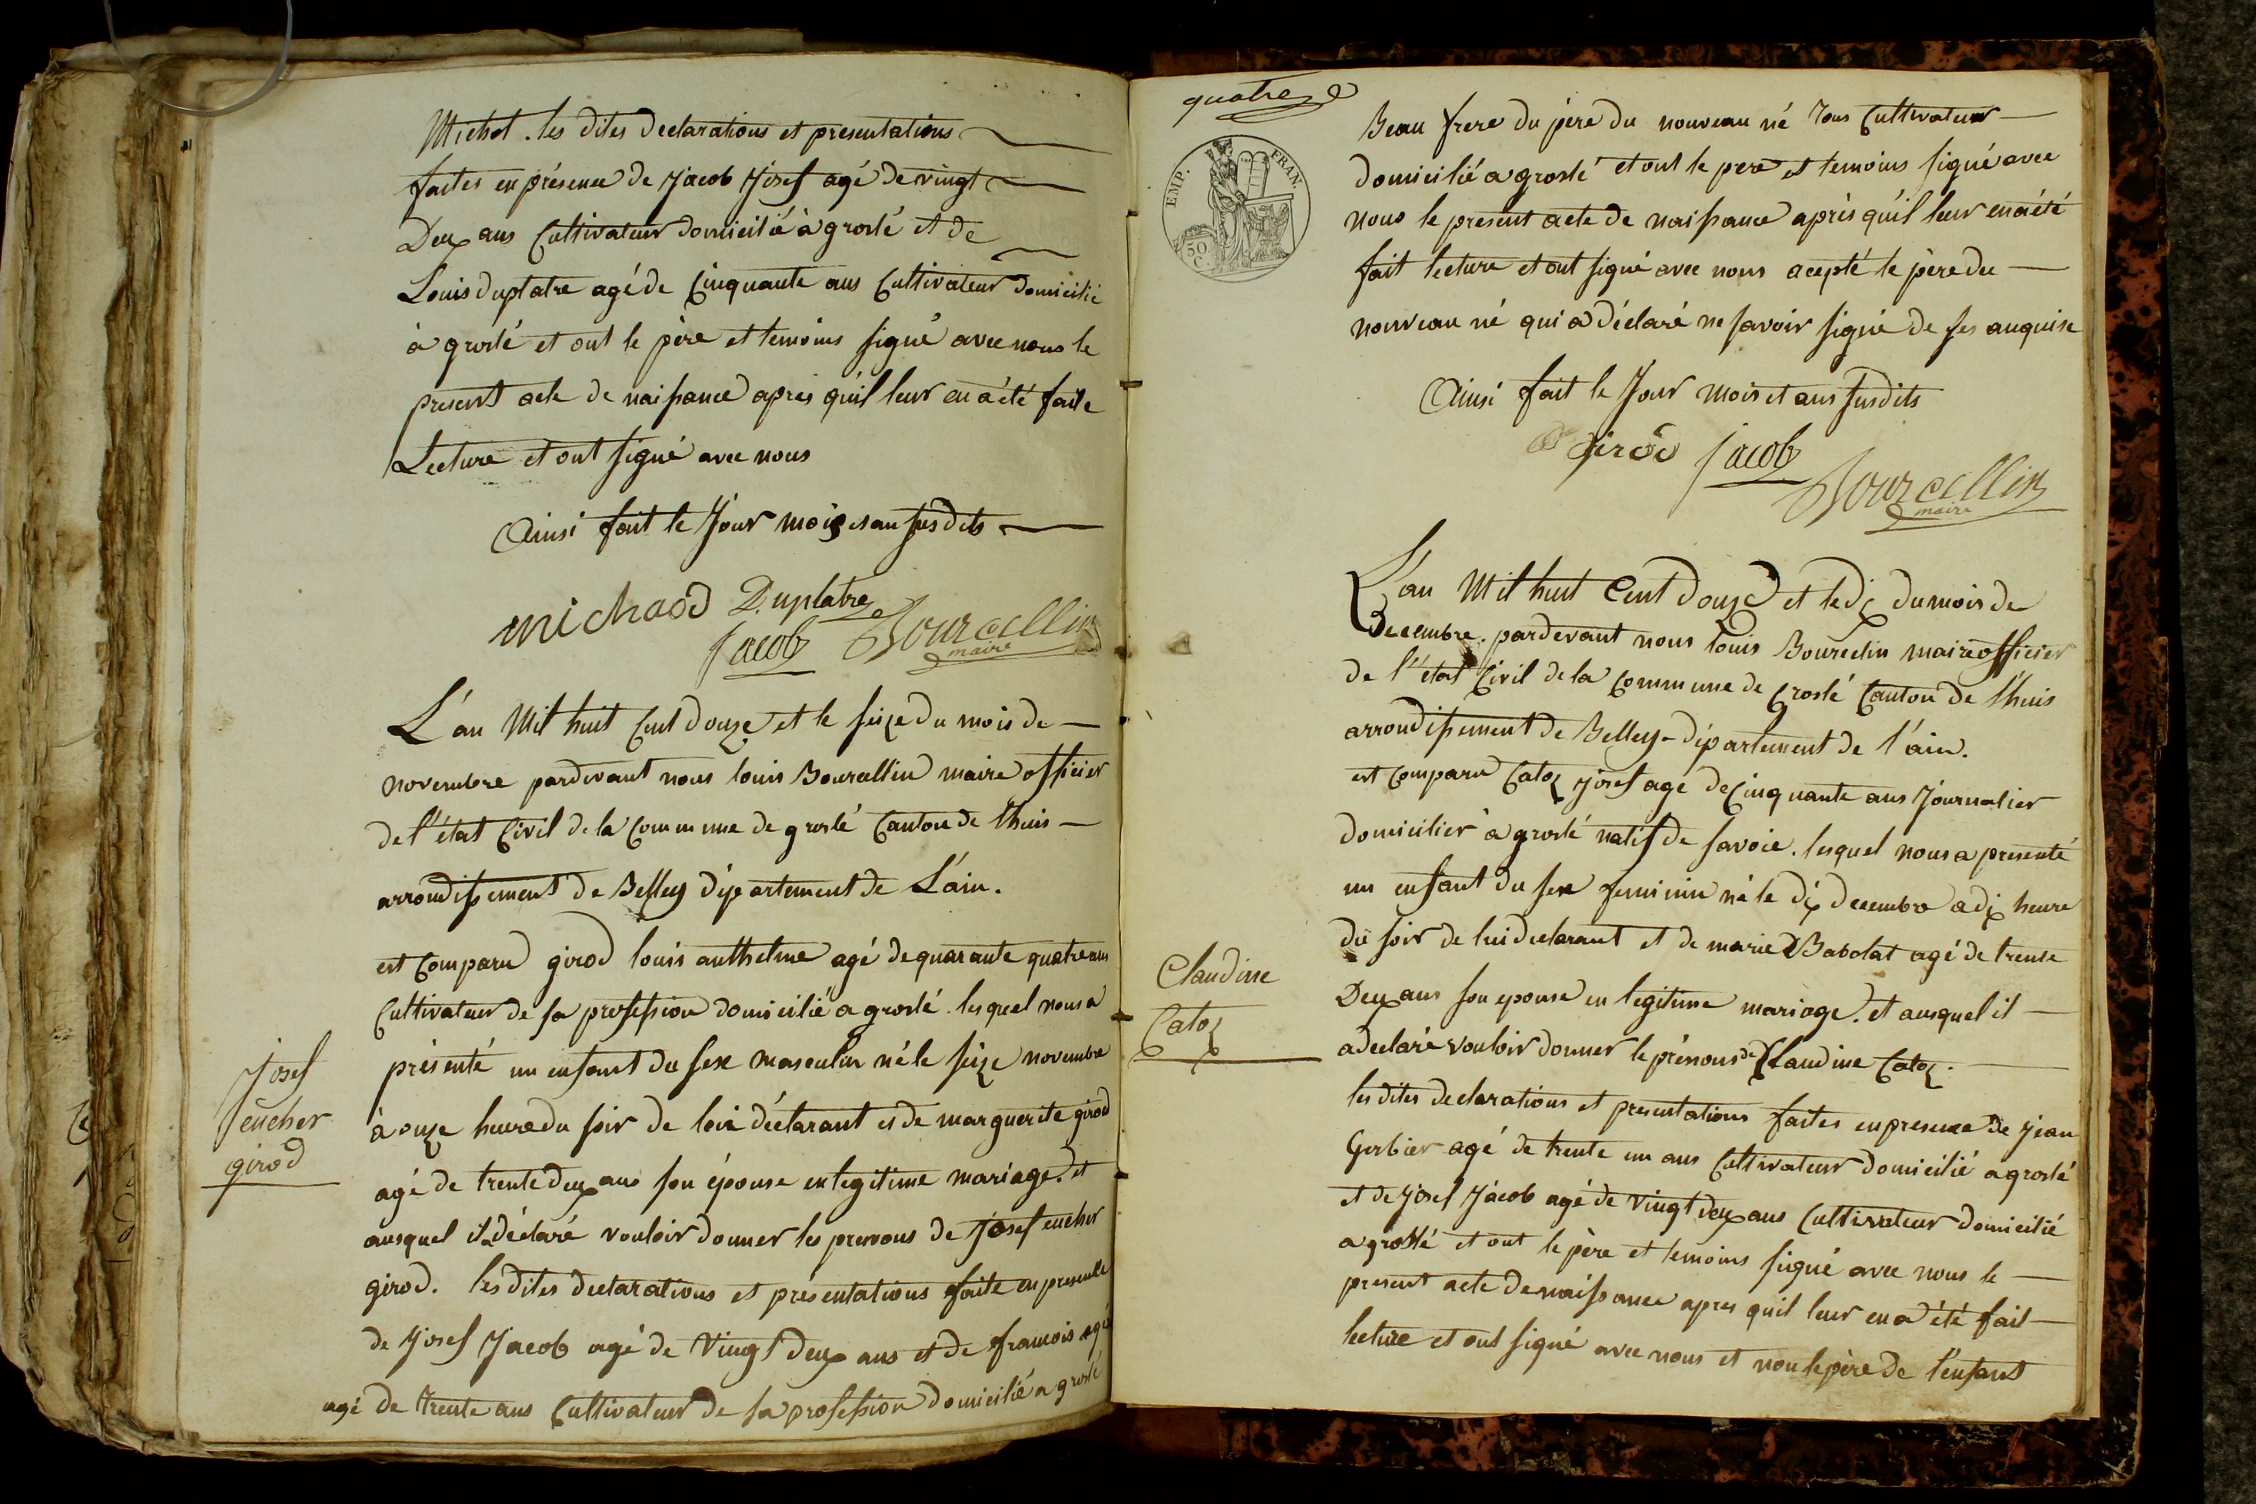 Michel. les dites declarations et presentations
faites en présence de Jacob Josef agé de vingt
Deux ans Cultivateur domicilié à groslé et de
Louis duplatre agé de Cinquante ans Cultivateur domicilié
à groslé et ont le père et temoins signé avec nous le
present acte de naissance apres qu'il leur en a été faite
Lecture et ont signé avec nous
Ainsi fait le Jour mois et an susdits
michaod Duplatre
Jacob Bourcellin
maire
L'an Mil huit Cent douze et le seize du mois de
novembre pardevant nous louis Bourcellin maire officier
de l'état Civil de la Commune de groslé Canton de lhuis
arrondissement de Belley département de L'ain.
est Comparu girod louis anthelme agé de quarante quatre ans
Cultivateur de sa profession domicilié a groslé. lesquel nous a
présenté un enfant du sexe masculin né le seize novembre
à onze heure du soir de lui déclarant et de marguerite girod
agé de trente deux ans son épouse en legitime mariage. et
ausquel il a déclaré vouloir donner les prenons de Josef eucher
girod. les dites declarations et presentations faite en presence
de Josef Jacob agé de Vingt deux ans et de francois agé
agé de trente ans Cultivateur de sa profession domicilié a groslé
Josef
eucher
girod
quatre
EMP. FRAN.
50 C.
Beau frere du père du nouveau né Tous Cultivateur
domicilié a groslé et ont le pere et temoins signé avec
nous le present acte de naissance après qu'il leur en a été
fait lecture et ont signé avec nous acepté le père du
nouveau né qui a déclaré ne savoir signé de ses anquise
Ainsi fait le Jour mois et ans susdits
girod Jacob
Bourcellin
maire
L'an Mil huit Cent douze et le dix du mois de
Decembre. pardevant nous louis Bourcelin maire officier
de l'état Civil de la Commune de Groslé Canton de lhuis
arrondissement de Belley département de l'ain.
est Comparu Catoz Josef age de Cinquante ans Journalier
domicilier à groslé natif de savoie. lesquel nous a presenté
un enfant du sexe feminin né le dix decembre a dix heure
du soir de lui declarant et de marie Babolat agé de trente
Deux ans son epouse en legitime mariage. et ausquel il
a declaré vouloir donner le prénons de Claudine Catoz.
les dites declarations et presentations faites en presence de Jean
Gerbier agé de trente un ans Cultivateur domicilié a groslé
et de Josef Jacob agé de Vingt deux ans Cultivateur domicilié
a groslé et ont le père et temoins signé avec nous le
present acte de naissance apres qu'il leur en a été fait
lecture et ont signé avec nous et non le père de l'enfant
Claudine
Catoz